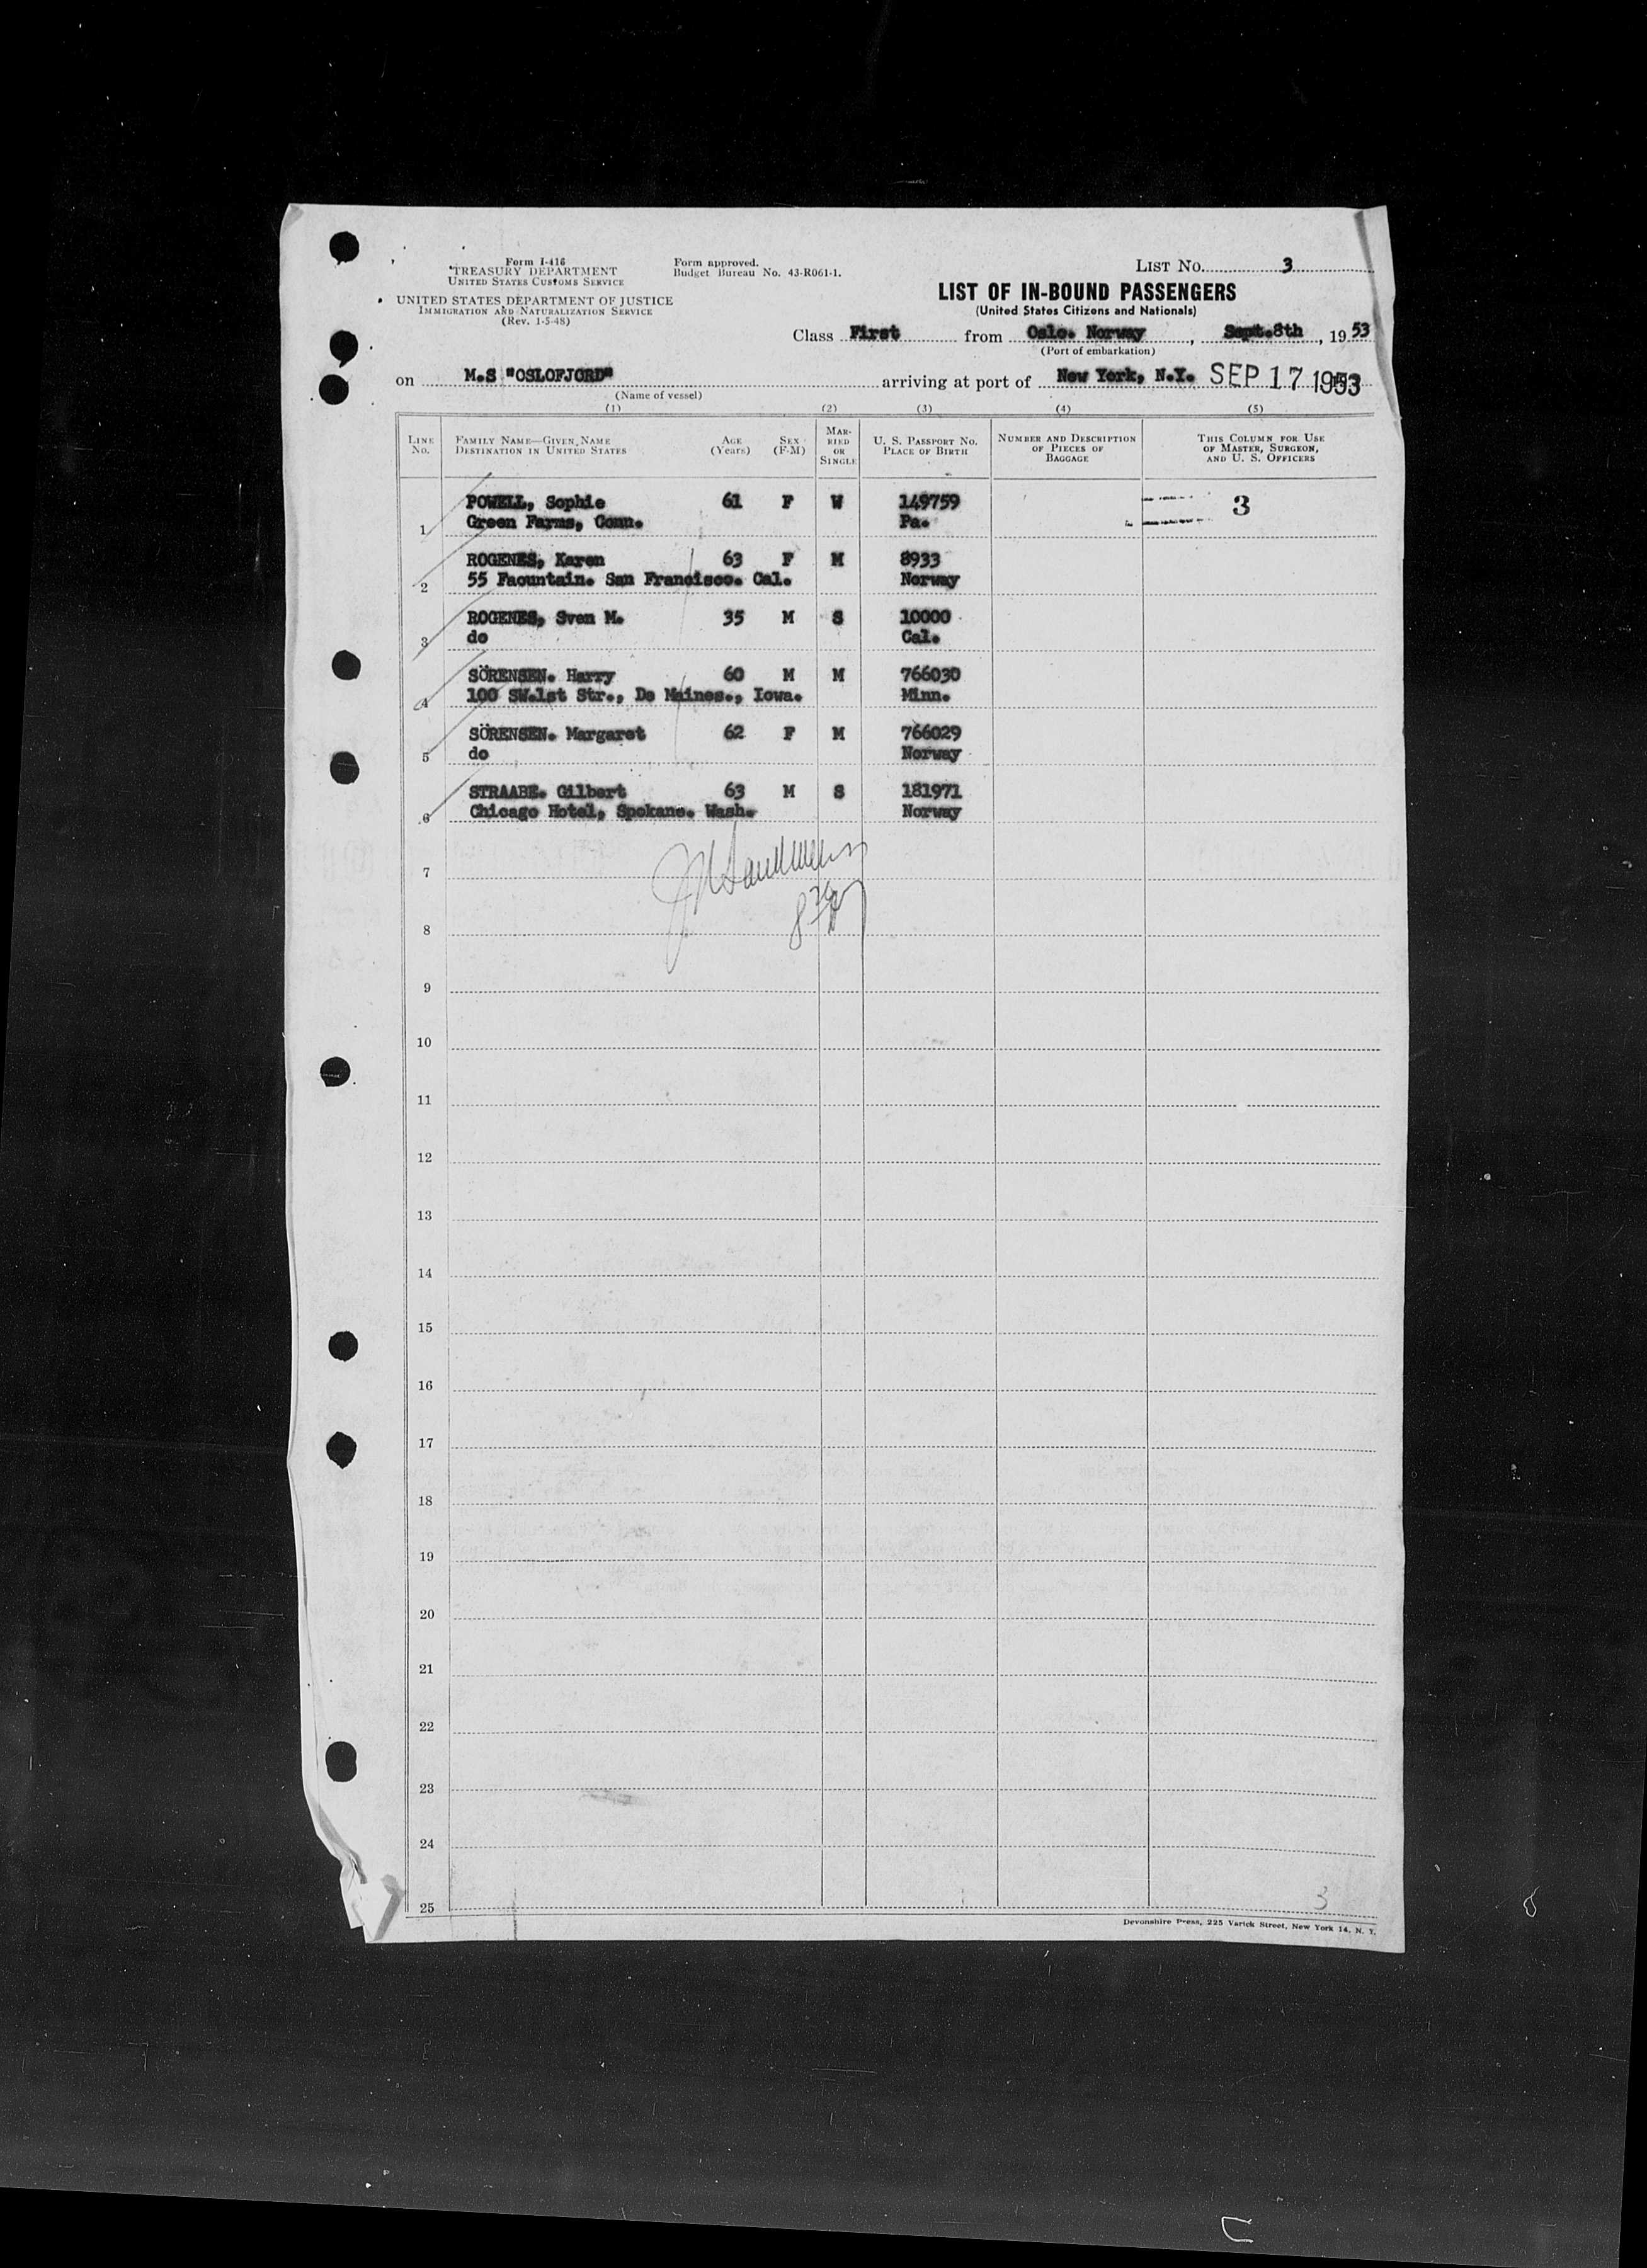 Form I-416
TREASURY DEPARTMENT
UNITED STATES CUSTOMS SERVICE
UNITED STATES DEPARTMENT OF JUSTICE
IMMIGRATION AND NATURALIZATION SERVICE
(Rev. 1-5-48)
Form approved.
Budget Bureau No. 43-R061-1.
LIST NO. 3
LIST OF IN-BOUND PASSENGERS
(United States Citizens and Nationals)
Class First from Oslo. Norway, Sept.8th, 19 53
(Port of embarkation)
on M.S "OSLOFJORD" arriving at port of New York, N.Y. SEP 17 1953
(Name of vessel)
(1) (2) (3) (4) (5)
LINE NO. FAMILY NAME—GIVEN NAME DESTINATION IN UNITED STATES AGE (Years) SEX (F-M) MARRIED OR SINGLE U. S. PASSPORT NO. PLACE OF BIRTH NUMBER AND DESCRIPTION OF PIECES OF BAGGAGE THIS COLUMN FOR USE OF MASTER, SURGEON, AND U. S. OFFICERS
POWELL, Sophie 61 F W 149759 3
1 Green Farms, Conn. Pa.
ROGENES, Karen 63 F M 8933
2 55 Faountain. San Francisco. Cal. Norway
ROGENES, Sven M. 35 M S 10000
3 do Cal.
SÖRENSEN. Harry 60 M M 766030
4 100 SW.1st Str., De Maines., Iowa. Minn.
SÖRENSEN. Margaret 62 F M 766029
5 do Norway
STRAABE. Gilbert 63 M S 181971
6 Chicago Hotel, Spokane. Wash. Norway
7
8
9
10
11
12
13
14
15
16
17
18
19
20
21
22
23
24
25
3
Devonshire Press, 225 Varick Street, New York 14, N. Y.